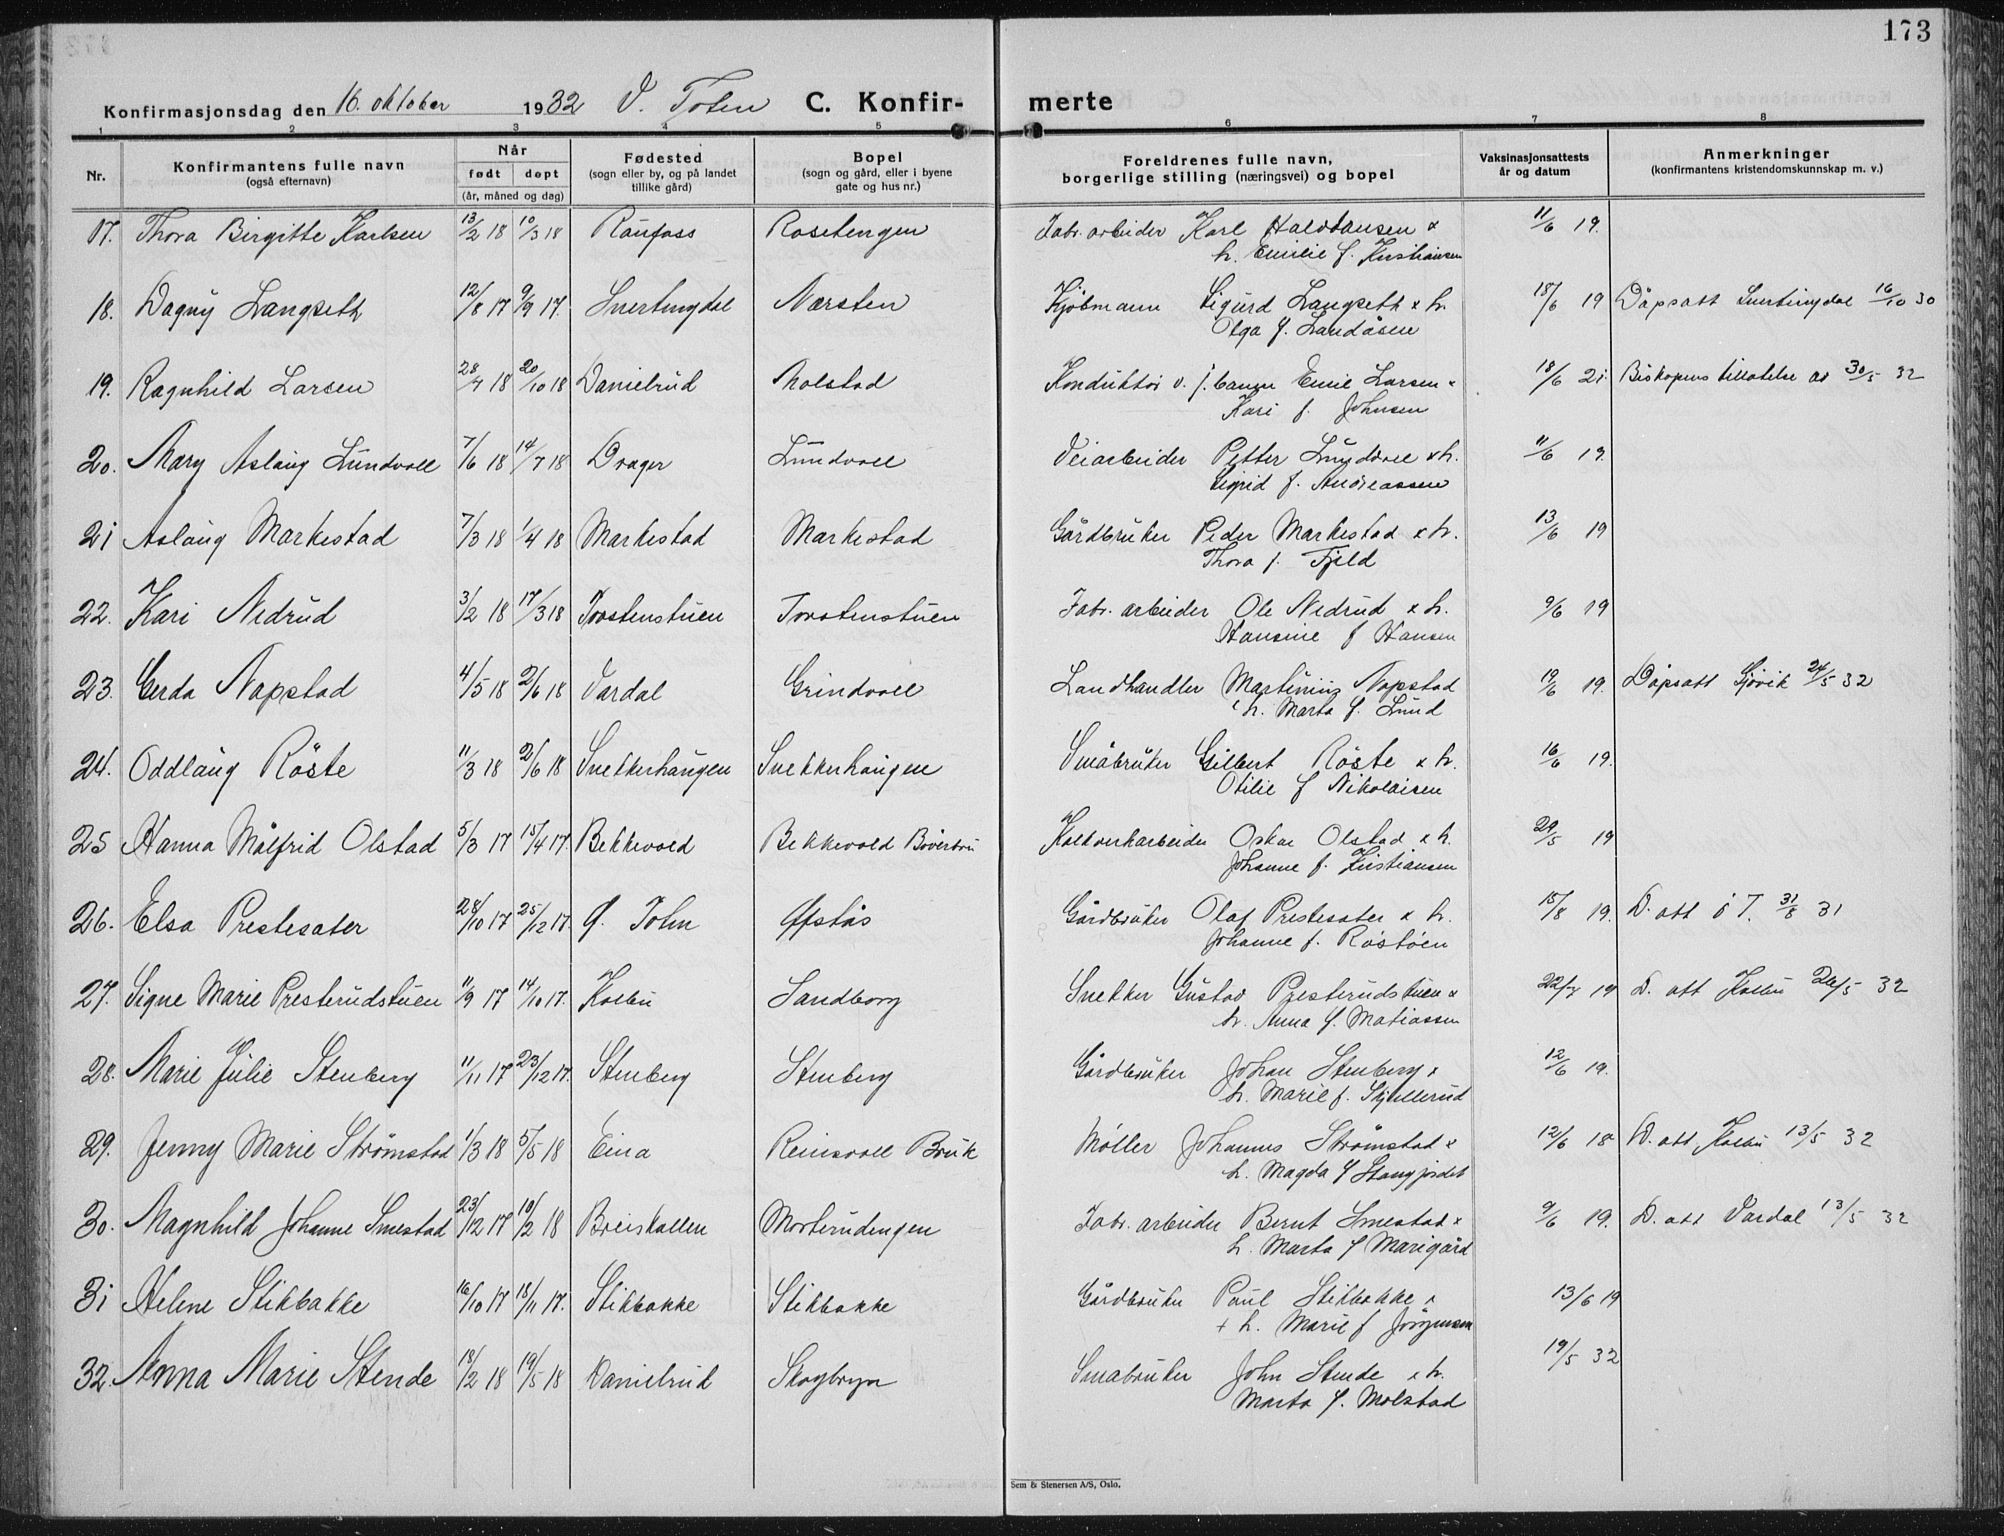 173
Konfirmasjonsdag den 16. oktober 1932 V. Toten C. Konfirmerte
1 2 3 4 5 6 7 8
Nr.
Konfirmantens fulle navn
(også efternavn)
Når
født døpt
(år, måned og dag)
Fødested
(sogn eller by, og på landet
tillike gård)
Bopel
(sogn og gård, eller i byene
gate og hus nr.)
Foreldrenes fulle navn,
borgerlige stilling (næringsvei) og bopel
Vaksinasjonsattests
år og datum
Anmerkninger
(konfirmantens kristendomskunnskap m. v.)
17. Thora Birgitte Karlsen 13/2 18 10/3 18 Raufoss Rosetengen Fabr. arbeider Karl Halvdansen x 11/6 19.
h. Emilie f. Kristiansen
18. Dagny Langseth 12/8 17 9/9 17. Snertingdal Nærsten Kjøbmann Sigurd Langseth x h. 18/6 19 Dåpsatt Snertingdal 16/10 30
Olga f. Landåsen
19. Ragnhild Larsen 28/7 18 20/10 18 Danielrud Molstad Konduktør v. j. banen Emil Larsen x 18/6 21. Biskopens tillatelse av 30/5 32
Kari f. Johnsen
20. Mary Aslaug Lundvoll 7/6 18 14/7 18 Drager Lundvoll Veiarbeider Petter Lundvoll x h. 11/6 19.
Sigrid f. Andreassen
21 Aslaug Markestad 7/3 18 1/4 18 Markestad Markestad Gårdbruker Peder Markestad x h. 13/6 19
Thora f. Fjeld
22. Kari Nedrud 3/2 18 17/3 18 Torstenstuen Torstenstuen Fabr. arbeider Ole Nedrud x h. 9/6 19
Hansine f Hansen
23. Gerda Napstad 4/5 18 2/6 18 Vardal Grindvoll Landhandler Martinius Napstad 19/6 19. Dåpsatt Gjøvik 24/5 32
h. Marta f. Lund
24. Oddlaug Röste 11/3 18 2/6 18 Snekkerhaugen Snekkerhaugen Småbruker Gilbert Röste x h. 16/6 19.
Otilie f Nikolaisen
25 Hanna Målfrid Olstad 5/3 17 15/4 17. Bekkevold Bekkevold Bøverbru Kalkverkarbeider Oskar Olstad x h. 29/5 19
Johanne f. Kristiansen
26. Elsa Prestesater 28/10 17 25/12 17. Ø. Toten Øfstås Gårdbruker Olaf Prestesater x h. 15/8 19. D. att ö T. 31/8 31
Johanne f. Röstöen
27. Signe Marie Presterudstuen 11/9 17 14/10 17. Kolbu Sandborg Snekker Gustav Presterudstuen x 22/7 19 D. att Kolbu 26/5 32
h. Anna f. Matiassen
28. Marie Julie Stenberg 11/11 17 23/12 17. Stenberg Stenberg Gårdbruker Johan Stenberg x 12/6 19.
h. Marie f. Skjellerud
29. Jenny Marie Strømstad 1/3 18 5/5 18 Eina Reinsvoll Bruk Møller Johannes Strømstad x 12/6 18 D. att. Kolbu 13/5 32
h. Magda f Stangjordet
30. Magnhild Johanne Smestad 23/12 17 10/2 18 Breiskallen Morterudengen Fabr. arbeider Bernt Smestad x 9/6 19. D. att Vardal 13/5 32
h. Marta f Marigård
31 Helene Stikbakke 16/10 17 18/11 17. Stikbakke Stikbakke Gårdbruker Paul Stikbakke x 13/6 19
+ h. Marie f Jörgensen
32. Anna Marie Stende 18/2 18 19/5 18 Danielrud Skogbryn Småbruker John Stende x h. 19/5 32
Marta f. Molstad
Sem & Stenersen A/S, Oslo.